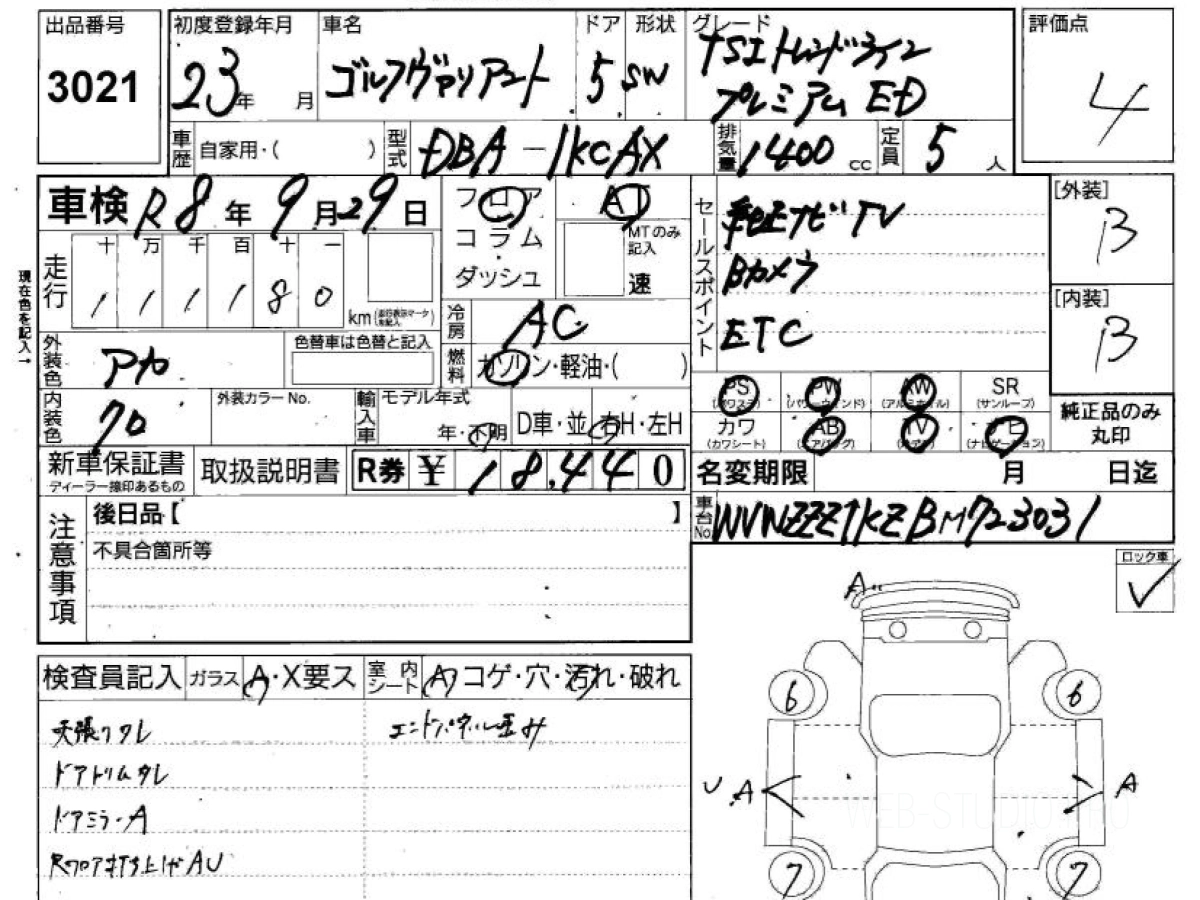 出品番号
3021
初度登録年月
23年 月
車名
ゴルフヴァリアント
ドア
5
形状
SW
グレード
TSIトレンドライン
プレミアムED
評価点
4
車歴
自家用・( )
型式
DBA-1KCAX
排気量
1400cc
定員
5人
車検 R8年9月29日
走行
十 万 千 百 十 一
111180
km(走行表示マーク未記入)
現在色を記入→
外装色
アカ
色替車は色替と記入
内装色
クロ
外装カラーNo.
フロア
コラム
ダッシュ
AT
MTのみ記入
速
冷房
AC
燃料
ガソリン・軽油・( )
輸入車
モデル年式
年・不明
D車・並
右H・左H
セールスポイント
純正ナビTV
Bカメラ
ETC
[外装]
B
[内装]
B
PS
(パワステ)
PW
(パワーウィンド)
AW
(アルミホイル)
SR
(サンルーフ)
カワ
(カワシート)
AB
(エアバッグ)
TV
ナビ
(ナビゲーション)
純正品のみ
丸印
新車保証書
ディーラー捺印あるもの
取扱説明書
R券
¥18,440
名変期限
月 日迄
車台No.
WVWZZZ1KZBM723031
注意事項
後日品【 】
不具合箇所等
ロック車
検査員記入
ガラス
A・X要ス
室内シート
A・コゲ・穴・汚れ・破れ
天張りタレ
エンドパネル歪み
ドアトリムタレ
ドアミラーA
Rフロア打ち上げAU
A
6
6
U A
A
7
7
WEB-STUDIO.RU